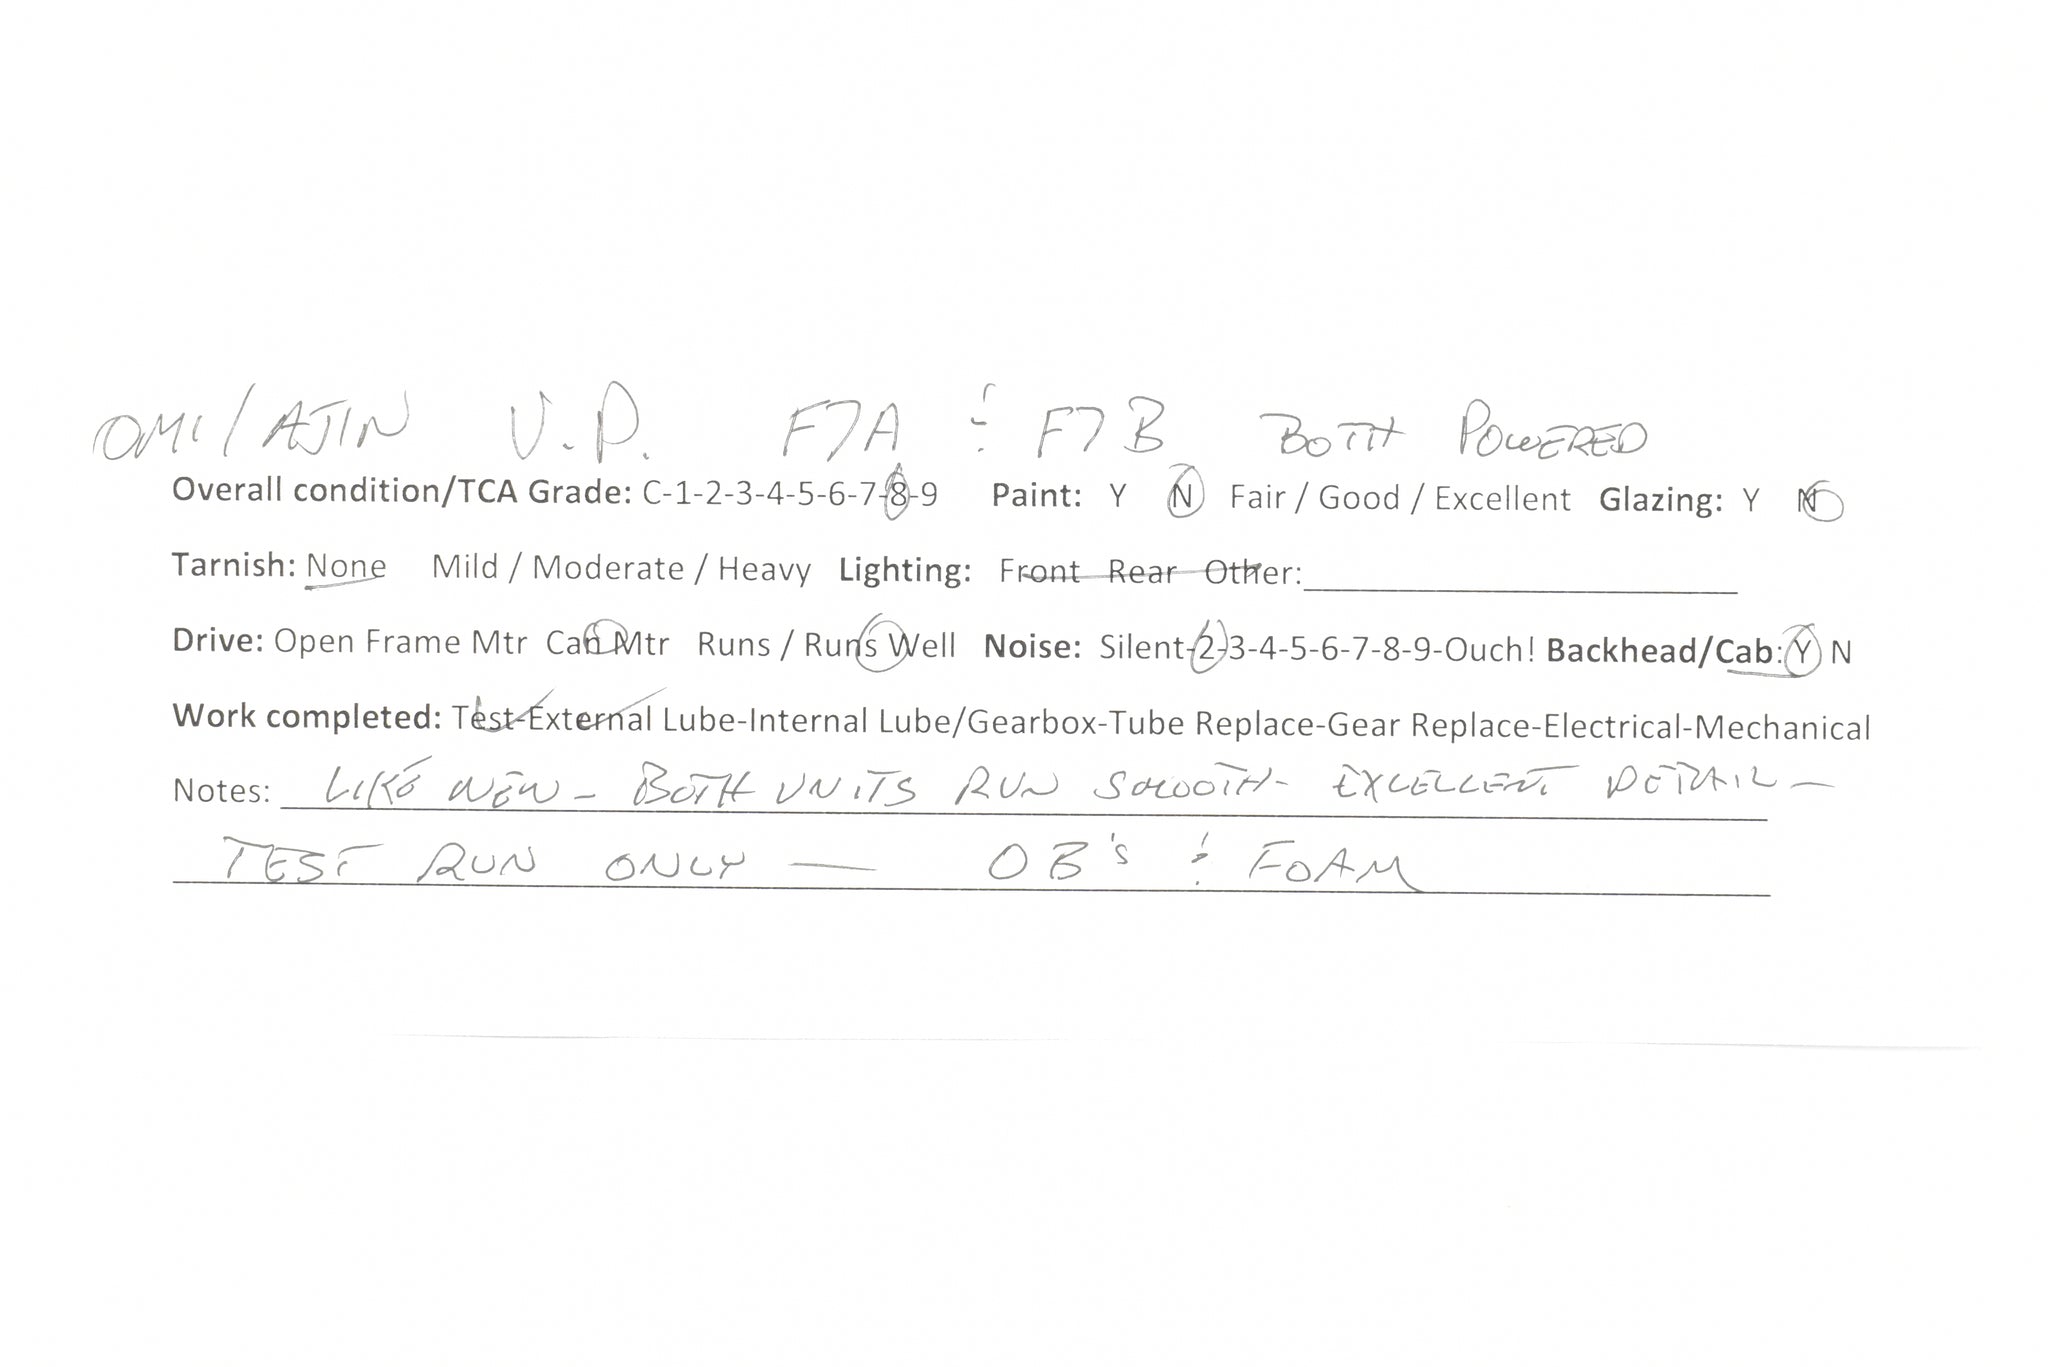 OMI/AJIN U.P. F7A & F7B BOTH POWERED
Overall condition/TCA Grade: C-1-2-3-4-5-6-7-8-9 Paint: Y N Fair / Good / Excellent Glazing: Y N
Tarnish: None Mild / Moderate / Heavy Lighting: Front Rear Other:
Drive: Open Frame Mtr Can Mtr Runs / Runs Well Noise: Silent-2-3-4-5-6-7-8-9-Ouch! Backhead/Cab: Y N
Work completed: Test-External Lube-Internal Lube/Gearbox-Tube Replace-Gear Replace-Electrical-Mechanical
Notes: LIKE NEW - BOTH UNITS RUN SMOOTH - EXCELLENT DETAIL -
TEST RUN ONLY — OB'S & FOAM